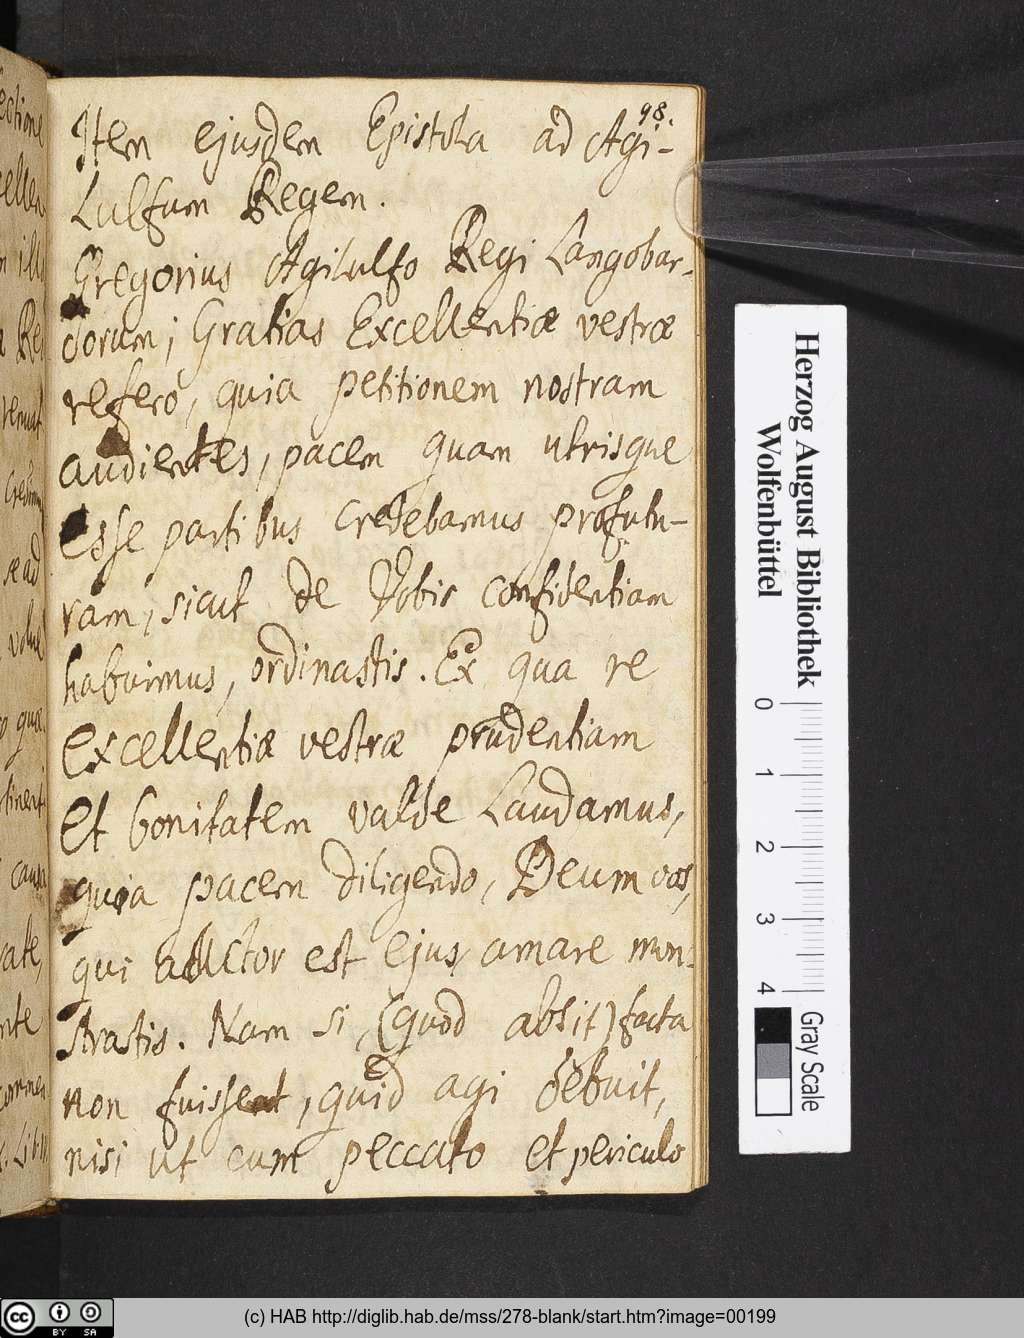 98.
Item ejusdem Epistola ad Agi-
Lulfum Regem.
Gregorius Agilulfo Regi Langobar-
dorum; Gratias Excellentiæ vestræ
refero, quia petitionem nostram
audientes, pacem quam utrisque
esse partibus credebamus profutu-
ram, sicut de Vobis confidentiam
habuimus, ordinastis. Ex qua re
Excellentiæ vestræ prudentiam
et bonitatem valde Laudamus,
quia pacem diligendo, Deum vos,
qui auctor est ejus, amare mon-
strastis. Nam si, (quod absit) facta
non fuissent, quid agi debuit,
nisi ut cum peccato et periculo
Herzog August Bibliothek
Wolfenbüttel
0 1 2 3 4
Gray Scale
(c) HAB http://diglib.hab.de/mss/278-blank/start.htm?image=00199
cc BY SA